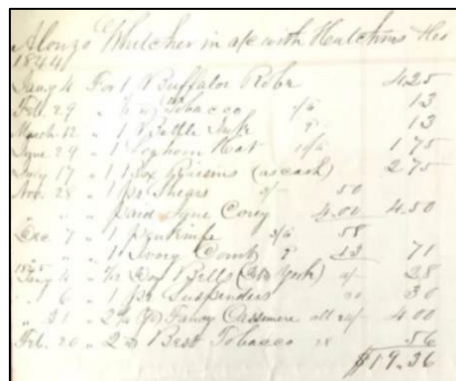 Alonzo Whitcher in a/c with Hutchins
1844
Jany 4 For 1 Buffalo Robe 425
Feb. 29 " Tobacco 13
March 12 " 1 Bottle Ink 9 13
June 29 " 1 Leghorn Hat 10/6 175
July 17 " 1 Box Raisins (as cash) 275
Nov. 28 " 1 pr Shears 3/ 50
" " Paid Corey 4.00 450
Dec 7 " 1 Penknife 3/6 58
" " 1 Ivory Comb 9 13 71
1845
Jany 4 " 1/2 Doz Bells (New York) 38
" 6 " 1 pr Suspenders 30
" 31 " 2 Yds Fancy Cassimere 400
Feb. 20 " 2 Best Tobacco 28 56
$19.36